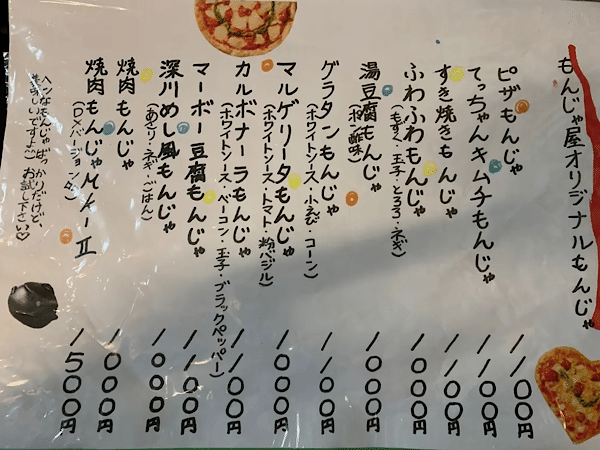 もんじゃ屋オリジナルもんじゃ
ピザもんじゃ 1100円
てっちゃんキムチもんじゃ 1100円
すき焼きもんじゃ 1100円
ふわふわもんじゃ 1000円
(もずく・玉子・とろろ・ネギ)
湯豆腐もんじゃ 1000円
(ポン酢味)
グラタンもんじゃ 1100円
(ホワイトソース・小えび・コーン)
マルゲリータもんじゃ 1000円
(ホワイトソース・トマト・粉バジル)
カルボナーラもんじゃ 1100円
(ホワイトソース・ベーコン・玉子・ブラックペッパー)
マーボー豆腐もんじゃ 1100円
深川めし風もんじゃ 1000円
(あさり・ネギ・ごはん)
焼肉もんじゃ 1000円
焼肉もんじゃMK-II 1500円
(DXバージョンタ)
ヘンなもんじゃばっかりだけど、
美味しいですよ♡お試し下さい♡